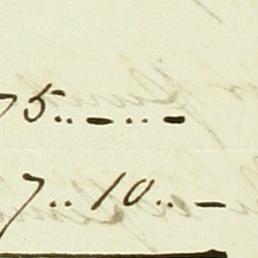 75..-..-
7..10..-